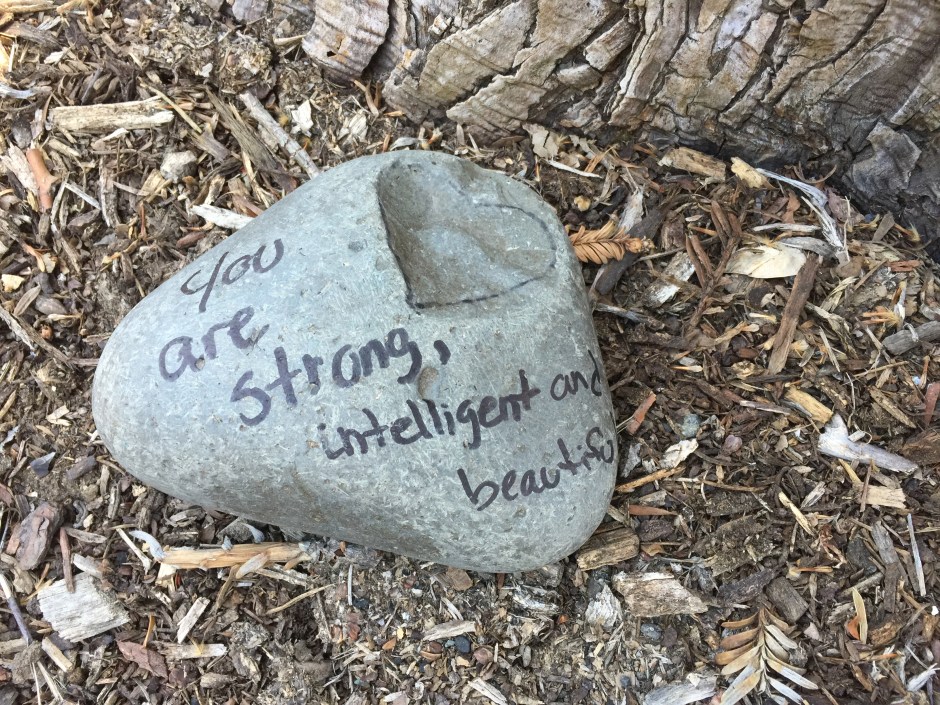 you
are
strong,
intelligent and
beautiful